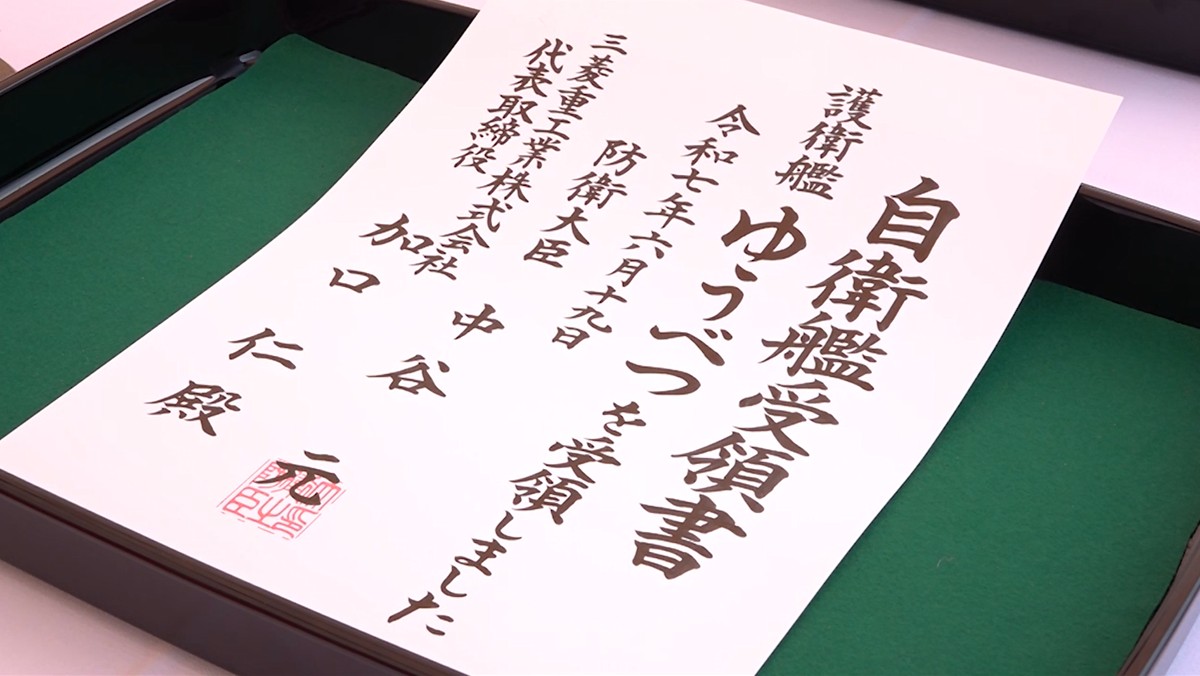 自衛艦受領書
護衛艦ゆうべつを受領しました
令和七年六月十九日
防衛大臣 中谷 元
三菱重工業株式会社
代表取締役 加口 仁 殿